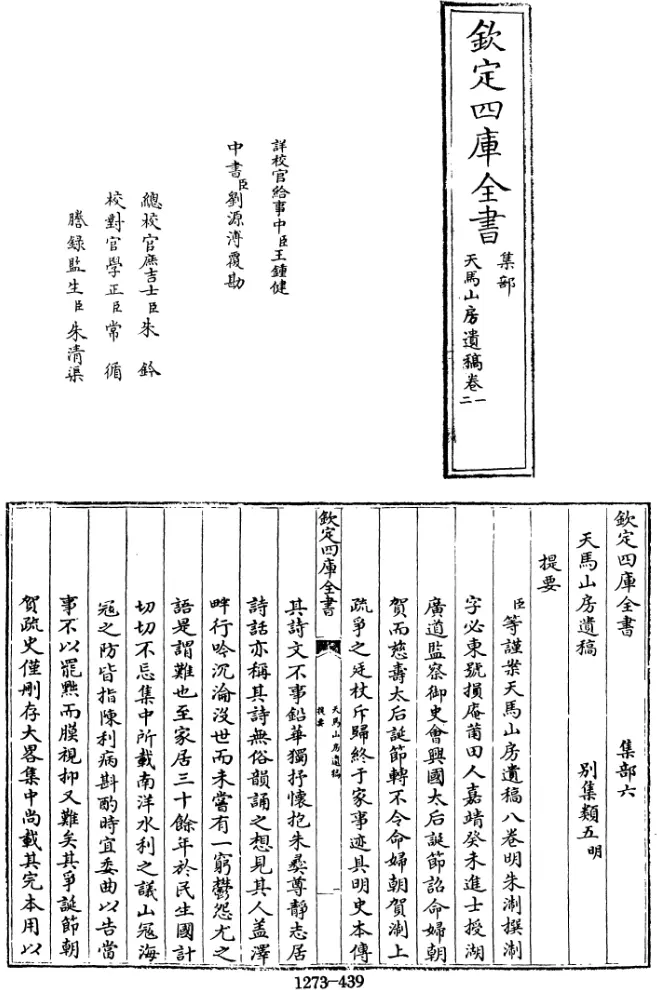 欽定四庫全書
集部
天馬山房遺稿卷一二
詳校官給事中臣王鍾健
中書臣劉源溥覆勘
總校官庶吉士臣朱鈐
校對官學正臣常循
謄録監生臣朱清渠
欽定四庫全書 集部六
天馬山房遺稿 别集類五明
提要
臣等謹案天馬山房遺稿八卷明朱淛撰淛
字必東號損庵莆田人嘉靖癸未進士授湖
廣道監察御史會興國太后誕節詔命婦朝
賀而慈壽太后誕節轉不令命婦朝賀淛上
疏爭之廷杖斥歸終于家事迹具明史本傳
欽定四庫全書
天馬山房遺稿
提要
其詩文不事鉛華獨抒懷抱朱彝尊静志居
詩話亦稱其詩無俗韻誦之想見其人盖澤
畔行吟沉淪没世而未嘗有一窮鬱怨尤之
語是謂難也至家居三十餘年於民生國計
切切不忘集中所載南洋水利之議山冦海
冦之防皆指陳利病斟酌時宜委曲以告當
事不以罷黜而膜視抑又難矣其爭誕節朝
賀疏史僅刪存大畧集中尚載其完本用以
1273-439